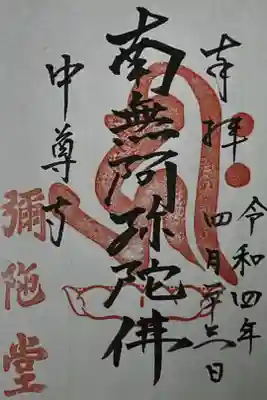 奉拝
令和四年
四月廿六日
南無阿弥陀佛
中尊寺
彌陀堂